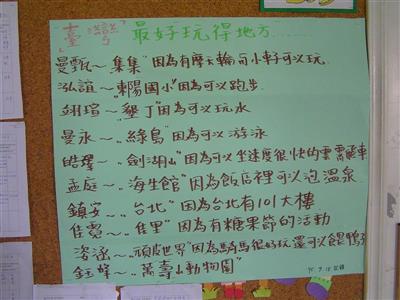 "臺灣"最好玩得地方......
曼甄~"集集"因為有摩天輪而小籽可以玩.
泓誼~"東陽國小"因為可以跑步
翊瑄~"墾丁"因為可以玩水
曼永~"綠島"因為可以游泳
皓璨~"劍湖山"因為可以坐速度很快的雲霄飛車
孟庭~"海生館"因為飯店裡可以泡溫泉
鎮安~"台北"因為台北有101大樓
佳霓~"佳里"因為有糖果節的活動
姿涵~"頑皮世界"因為騎馬很好玩還可以餵鴨子
鈺蜂~"萬壽山動物園"